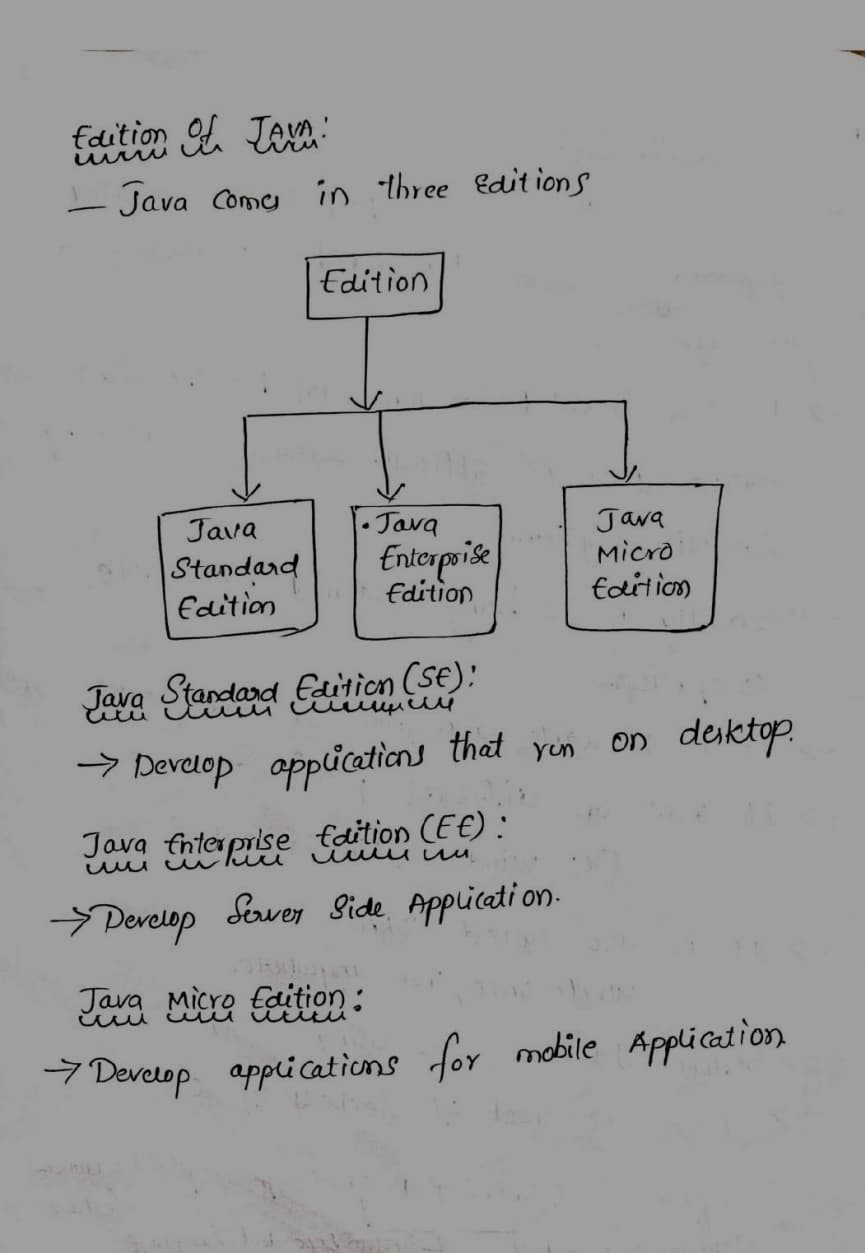 Edition Of JAVA:
— Java comes in three Editions
Edition
Java
Standard
Edition
Java
Enterprise
Edition
Java
Micro
Edition
Java Standard Edition (SE):
→ Develop applications that run on desktop.
Java Enterprise Edition (EE):
→ Develop Server Side Application.
Java Micro Edition:
→ Develop applications for mobile Application